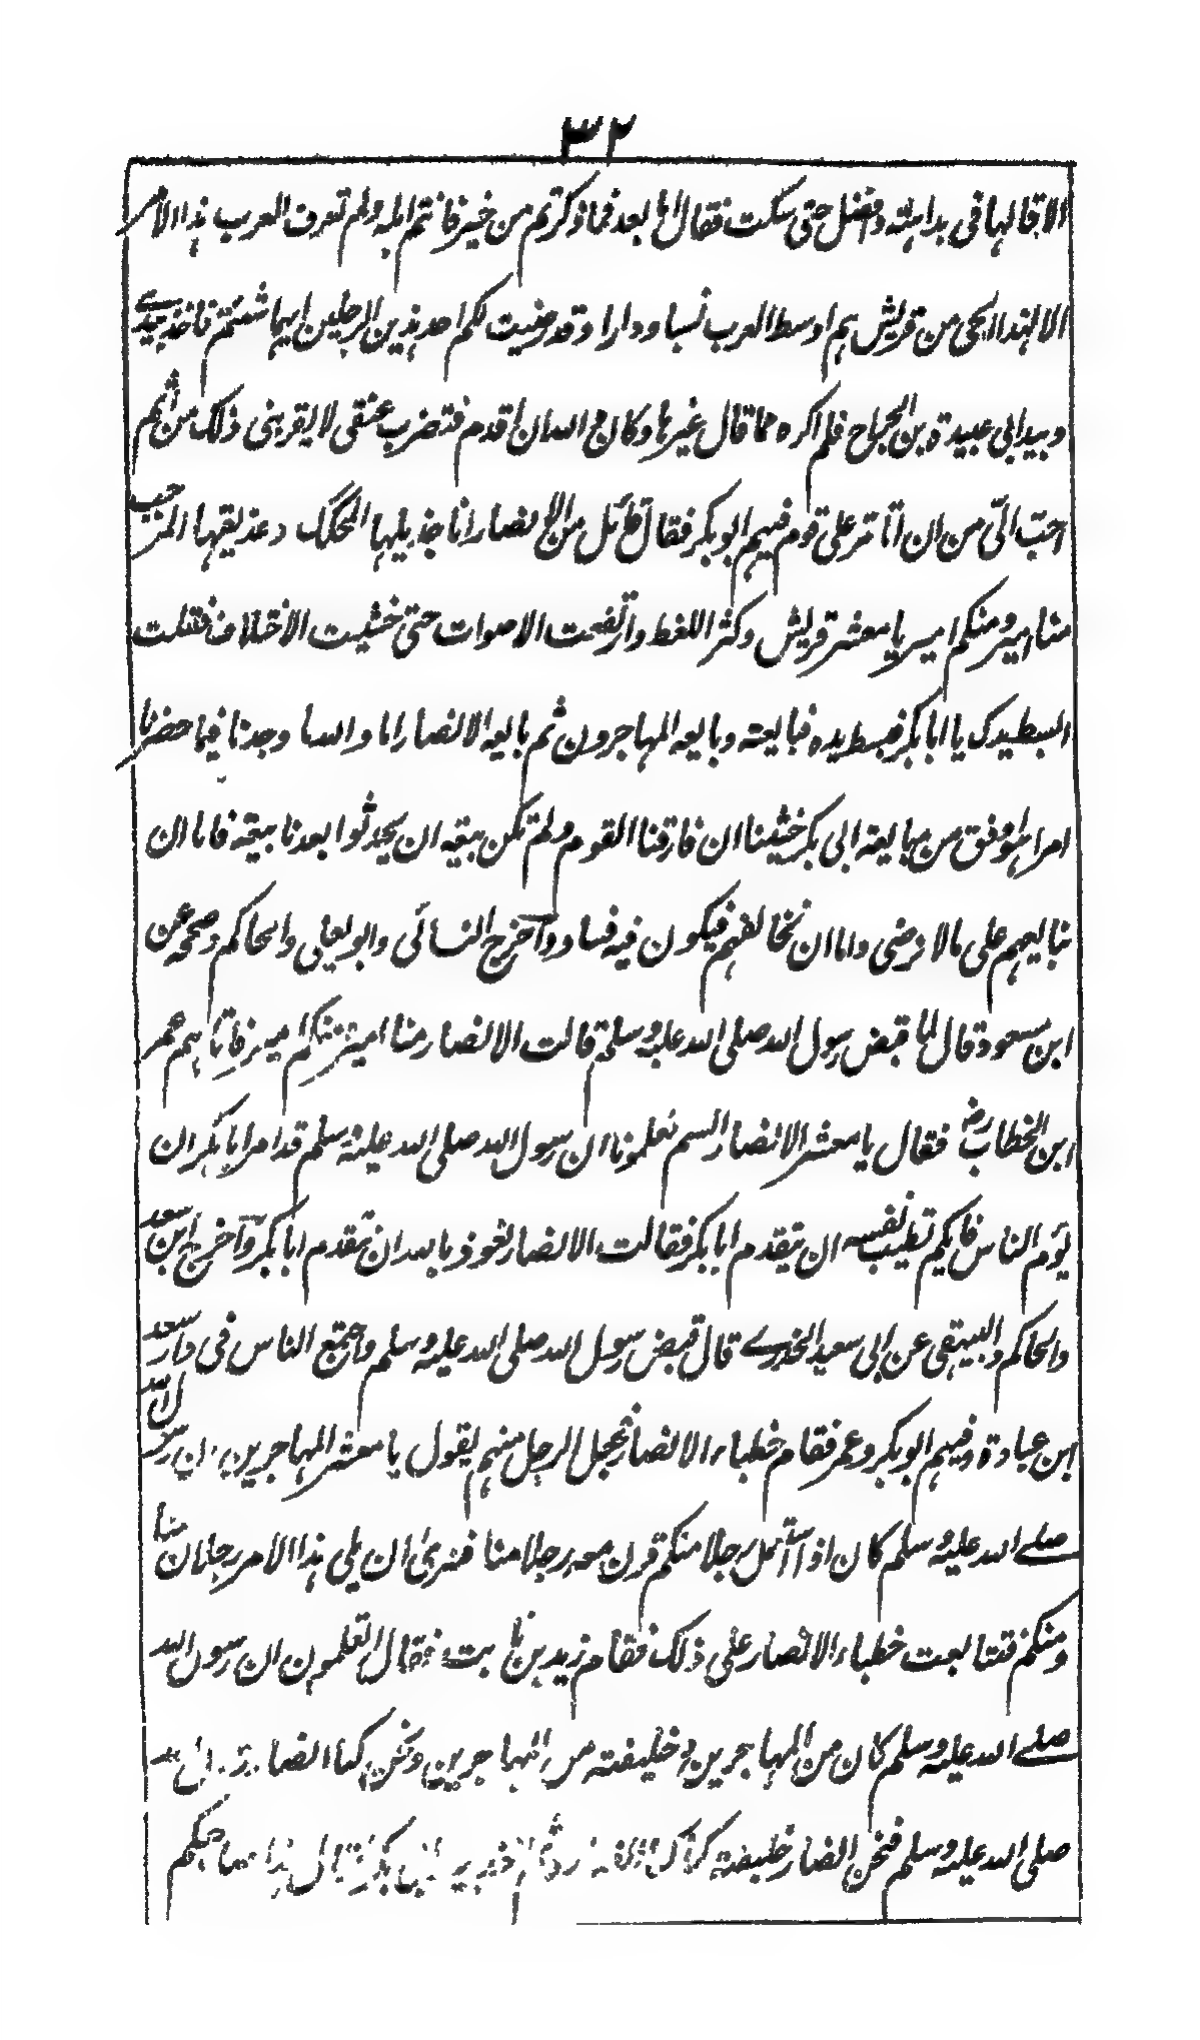 ٣٢
الا قالها فى بداهته وافضل حتى سكت فقال اما بعد فما ذكرتم من خير فانتم اهله ولم تعرف العرب هذا الامر
الا لهذا الحى من قريش هم اوسط العرب نسبا ودارا وقد رضيت لكم احد هذين الرجلين ايهما شئتم فاخذ بيدے
وبيد ابى عبيدة بن الجراح فلم اكره مما قال غيرها وكان والله ان اقدم فتضرب عنقى لا يقربنى ذلك من اثم
احبّ الىّ من ان اتامر على قوم فيهم ابو بكر فقال قائل من الانصار انا جذيلها المحكك وعذيقها المرجب
منا امير ومنكم امير يا معشر قريش وكثر اللغط وارتفعت الاصوات حتى خشيت الاختلاف فقلت
ابسط يدك يا ابا بكر فبسط يده فبايعته وبايعه المهاجرون ثم بايعه الانصار اما والله ما وجدنا فيما حضرنا
امرا هو اوفق من مبايعة ابى بكر خشينا ان فارقنا القوم ولم تكن بيعة ان يحدثوا بعدنا بيعة فاما ان
نبايعهم على ما لا نرضى واما ان نخالفهم فيكون فيه فساد وآخرج النسائى وابو يعلى والحاكم وصححه عن
ابن مسعود قال لما قبض رسول الله صلى الله عليه وسلم قالت الانصار منا امير ومنكم امير فاتاهم عمر
ابن الخطاب رض فقال يا معشر الانصار الستم تعلمون ان رسول الله صلى الله عليه وسلم قد امر ابا بكر ان
يؤم الناس فايكم تطيب نفسه ان يتقدم ابا بكر فقالت الانصار نعوذ بالله ان نتقدم ابا بكر وآخرج ابن سعد
والحاكم والبيهقى عن ابى سعيد الخدرے قال قبض رسول الله صلى الله عليه وسلم واجتمع الناس فى دار سعد
ابن عبادة وفيهم ابو بكر وعمر فقام خطباء الانصار فجعل الرجل منهم يقول يا معشر المهاجرين ان رسول الله
صلے الله عليه وسلم كان اذا استعمل رجلا منكم قرن معه رجلا منا فنرى ان يلى هذا الامر رجلان منا
ومنكم فتتابعت خطباء الانصار على ذلك فقام زيد بن ثابت فقال اتعلمون ان رسول الله
صلے الله عليه وسلم كان من المهاجرين وخليفته من المهاجرين ونحن كنا انصار
صلى الله عليه وسلم فنحن انصار خليفته كما كنا ثم اخذ بيد ابى بكر فقال هذا صاحبكم